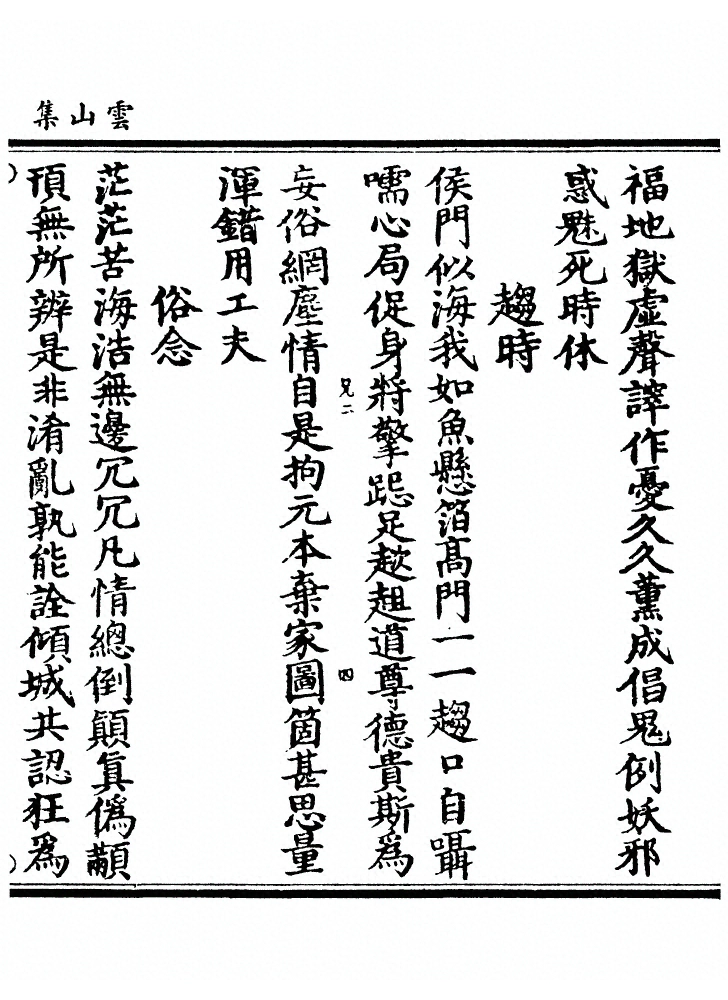 雲山集
福地獄虛聲譯作憂久久薰成倡鬼例妖邪
惑魅死時休
趨時
侯門似海我如魚懸箔髙門一一趨口自囁
嚅心局促身將擎跽足趑趄道尊德貴斯為
妄俗網塵情自是拘元本棄家圖箇甚思量
渾錯用工夫
兄二
四
俗念
茫茫苦海浩無邊冗冗凡情總倒顛真偽顢
頇無所辨是非淆亂孰能詮傾城共認狂為